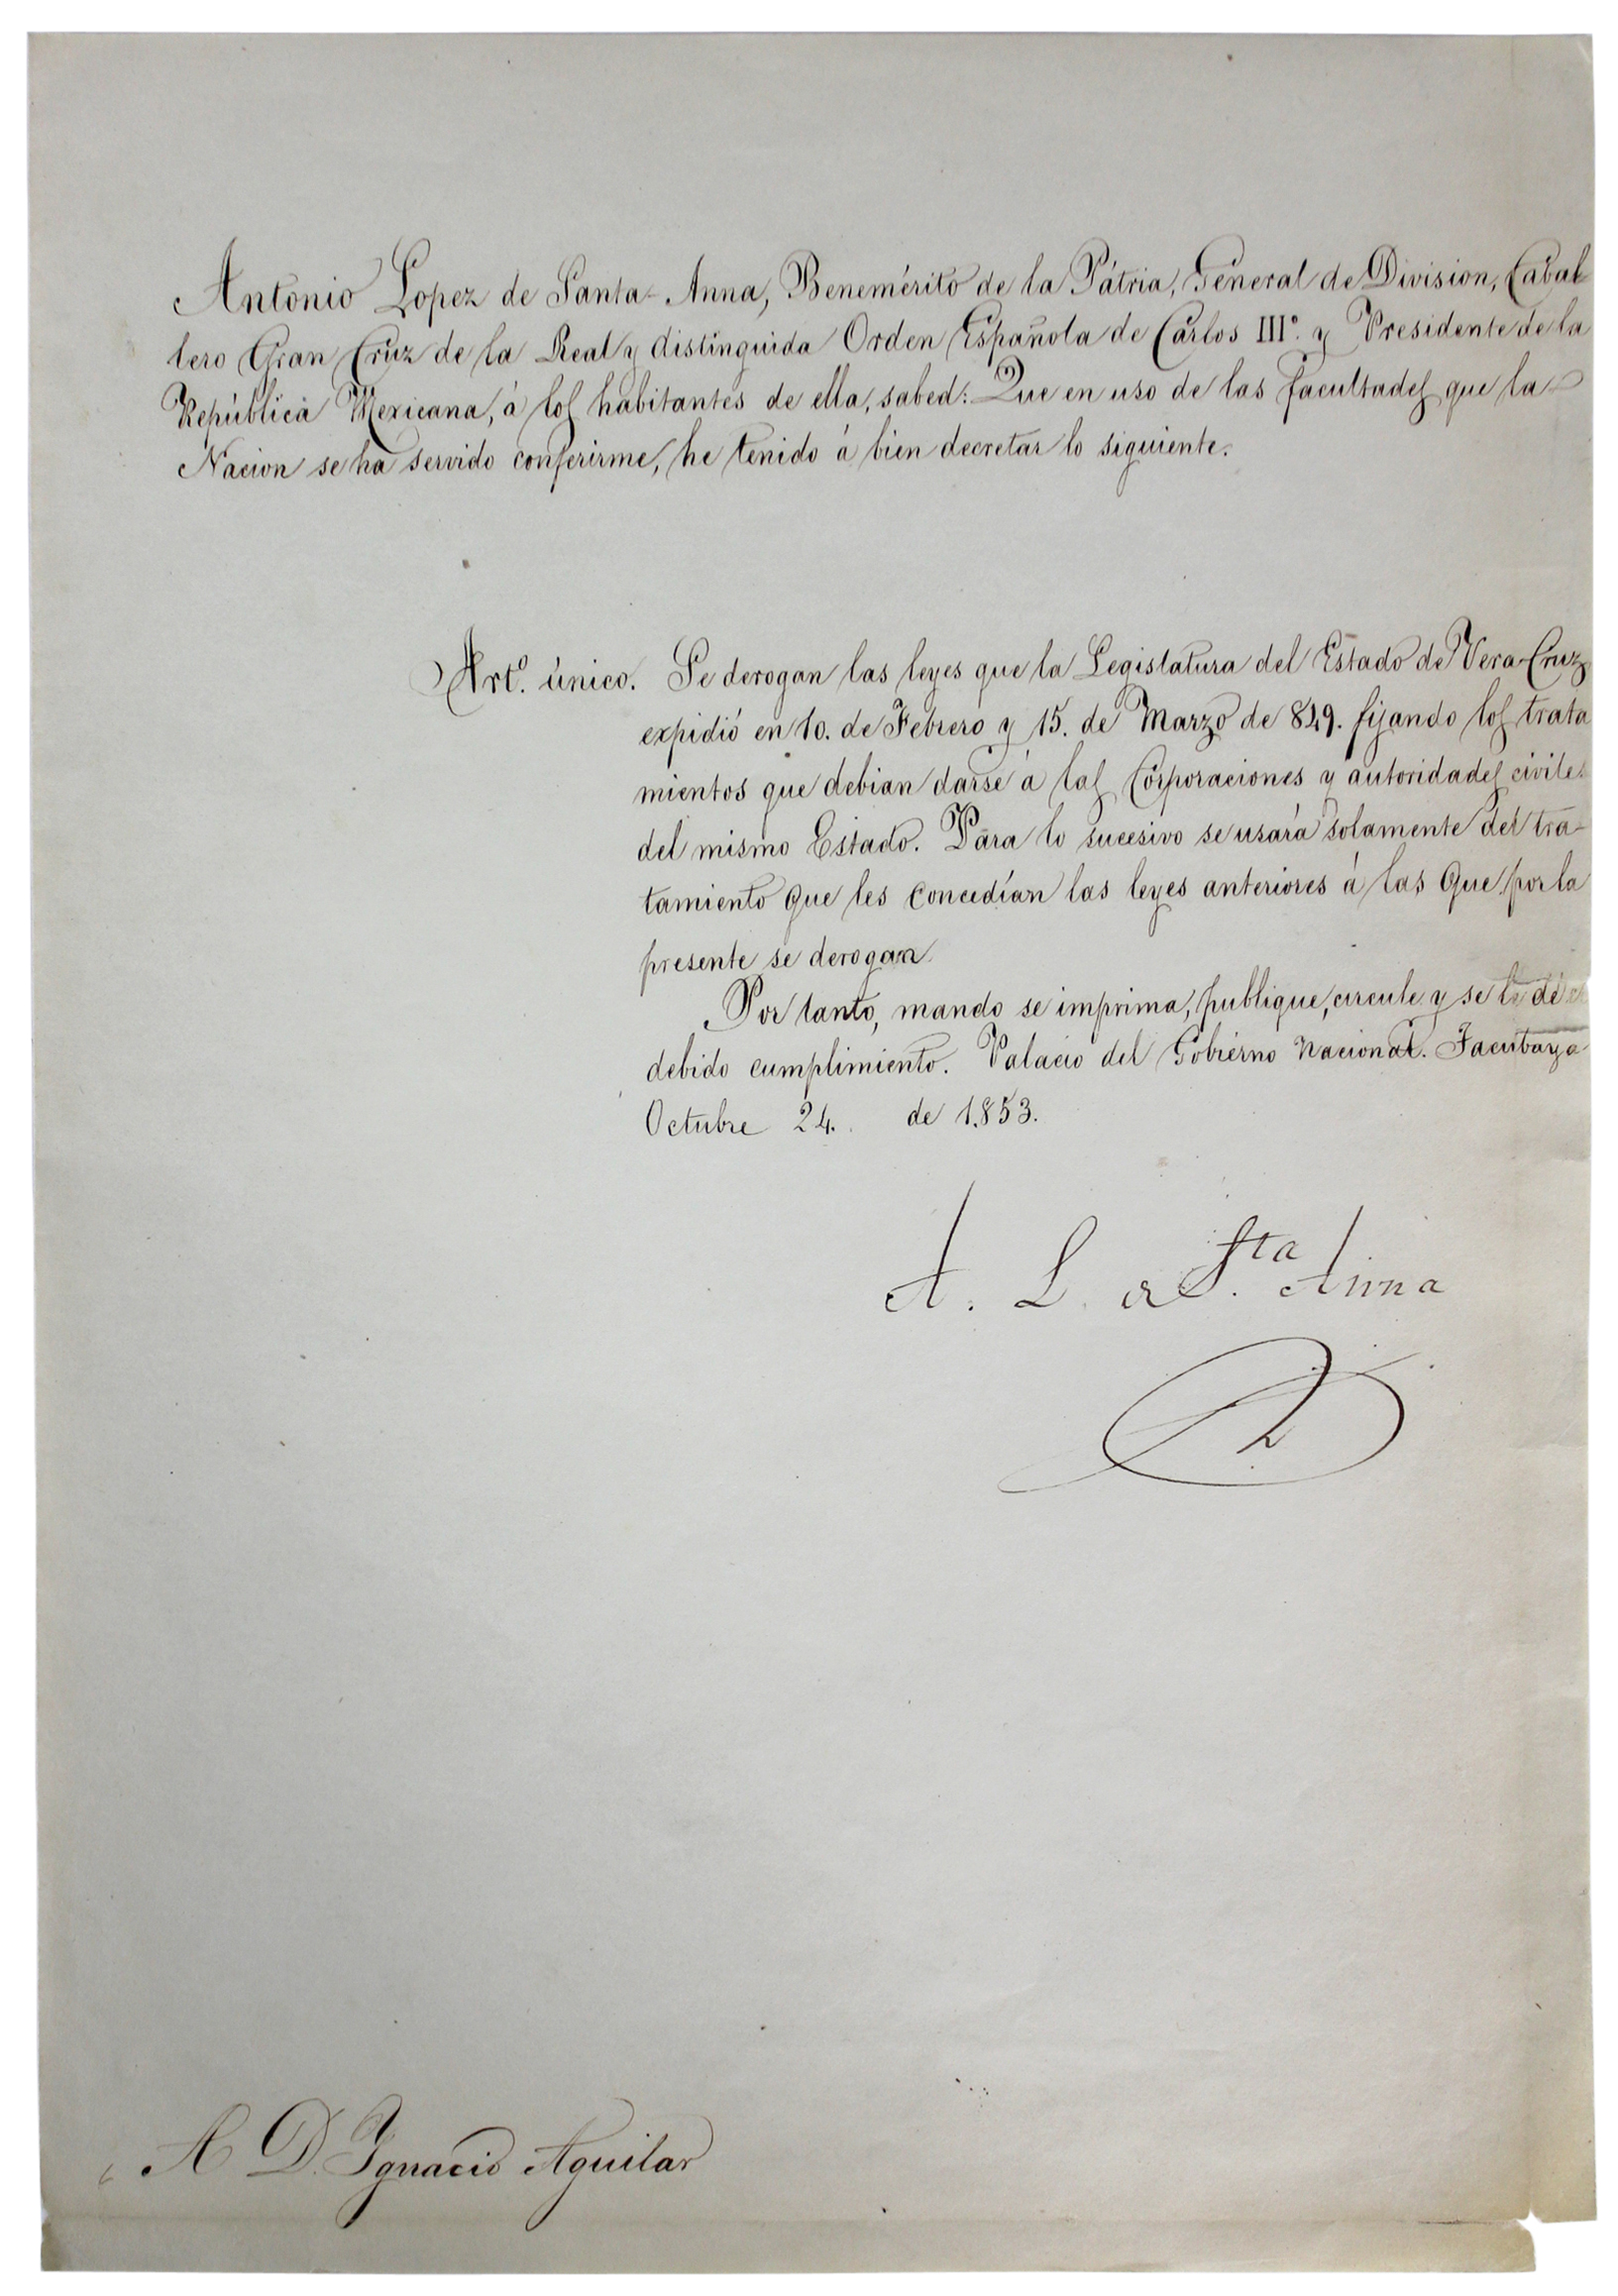 Antonio Lopez de Santa-Anna, Benemérito de la Pátria, General de Division, Cabal-
lero Gran Cruz de la Real y distinguida Orden Española de Carlos III°. y Presidente de la
República Mexicana, á los habitantes de ella, sabed: Que en uso de las facultades que la
Nacion se ha servido conferirme, he tenido á bien decretar lo siguiente.
Art.º único. Se derogan las leyes que la Legislatura del Estado de Vera-Cruz
expidió en 10. de Febrero y 15. de Marzo de 849. fijando los trata
mientos que debian darse á las Corporaciones y autoridades civiles
del mismo Estado. Para lo sucesivo se usará solamente del tra-
tamiento que les concedían las leyes anteriores á las que por la
presente se derogan.
Por tanto, mando se imprima, publique, circule y se le dé el
debido cumplimiento. Palacio del Gobierno Nacional. Tacubaya
Octubre 24. de 1,853.
A. L. de Sta. Anna
A D. Ignacio Aguilar